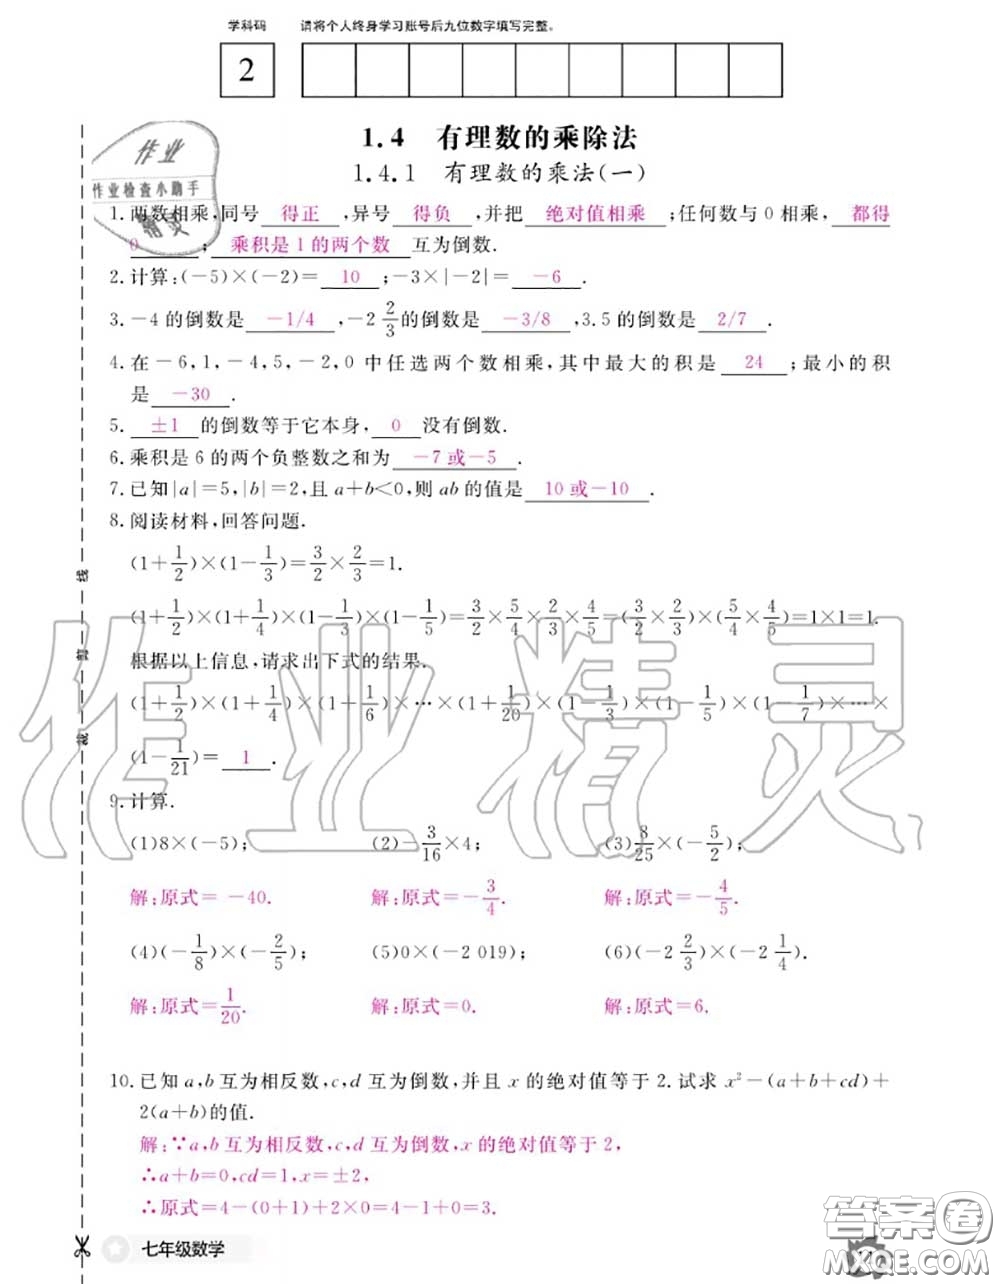 学科码 请将个人终身学习账号后九位数字填写完整。
2
1.4 有理数的乘除法
1.4.1 有理数的乘法(一)
作业
作业检查小助手
精灵
1.两数相乘,同号 得正 ,异号 得负 ,并把 绝对值相乘 ;任何数与0相乘, 都得
0 ; 乘积是1的两个数 互为倒数.
2.计算:(-5)×(-2)= 10 ;-3×|-2|= -6 .
3.-4的倒数是 -1/4 ,-2 2/3的倒数是 -3/8 ,3.5的倒数是 2/7 .
4.在-6,1,-4,5,-2,0中任选两个数相乘,其中最大的积是 24 ;最小的积
是 -30 .
5. ±1 的倒数等于它本身, 0 没有倒数.
6.乘积是6的两个负整数之和为 -7或-5 .
7.已知|a|=5,|b|=2,且a+b<0,则ab的值是 10或-10 .
8.阅读材料,回答问题.
(1+1/2)×(1-1/3)=3/2×2/3=1.
(1+1/2)×(1+1/4)×(1-1/3)×(1-1/5)=3/2×5/4×2/3×4/5=(3/2×2/3)×(5/4×4/5)=1×1=1.
根据以上信息,请求出下式的结果.
(1+1/2)×(1+1/4)×(1+1/6)×…×(1+1/20)×(1-1/3)×(1-1/5)×(1-1/7)×…×
(1-1/21)= 1 .
9.计算.
(1)8×(-5); (2)-3/16×4; (3)8/25×(-5/2);
解:原式=-40. 解:原式=-3/4. 解:原式=-4/5.
(4)(-1/8)×(-2/5); (5)0×(-2 019); (6)(-2 2/3)×(-2 1/4).
解:原式=1/20. 解:原式=0. 解:原式=6.
10.已知a,b互为相反数,c,d互为倒数,并且x的绝对值等于2.试求x²-(a+b+cd)+
2(a+b)的值.
解:∵a,b互为相反数,c,d互为倒数,x的绝对值等于2,
∴a+b=0,cd=1,x=±2,
∴原式=4-(0+1)+2×0=4-1+0=3.
线
剪
裁
作业精灵
七年级数学
答案圈